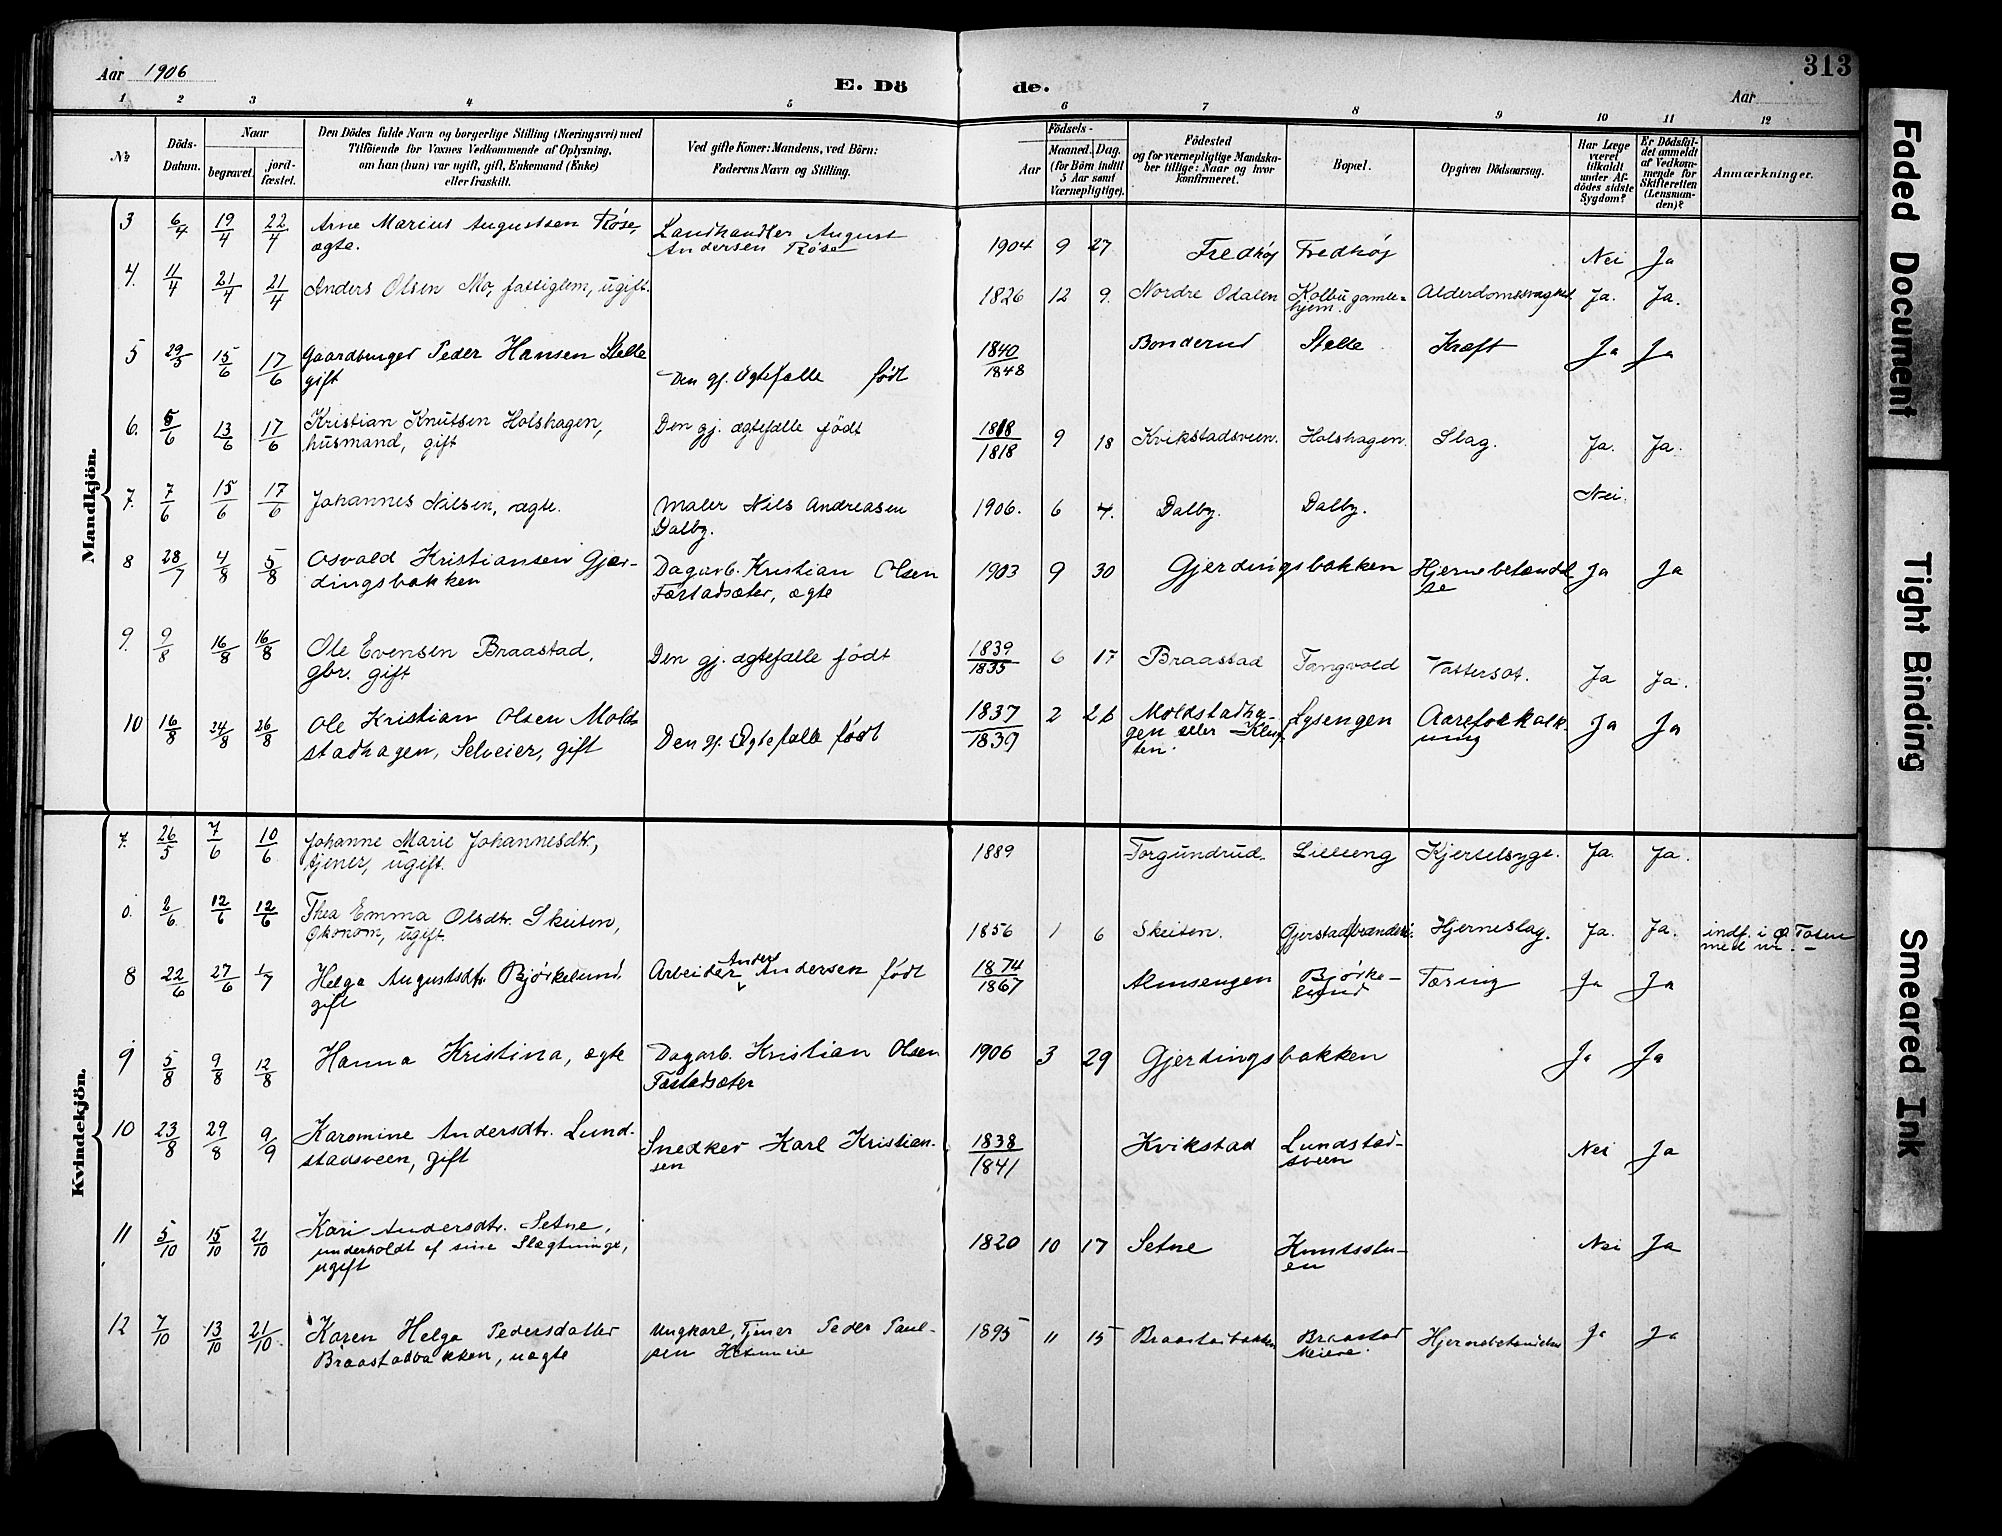 Aar 1906
E. Dö
de.
313
Aar
1 2 3 4 5 6 7 8 9 10 11 12
No
Döds-
Datum.
Naar
begravet.
jord-
fæstet.
Den Dödes fulde Navn og borgerlige Stilling (Næringsvei) med
Tilföiende for Voxnes Vedkommende af Oplysning,
om han (hun) var ugift, gift, Enkemand (Enke)
eller fraskilt.
Ved gifte Koner: Mandens, ved Börn:
Faderens Navn og Stilling.
Födsels-
Aar
Maaned. Dag.
(for Börn indtil
5 Aar samt
Værnepligtige).
Födested
og for værnepligtige Mandska-
ber tillige: Naar og hvor
konfirmeret.
Bopæl.
Opgiven Dödsaarsag.
Har Læge
været
tilkaldt
under Af-
dödes sidste
Sygdom?
Er Dödsfal-
det anmeldt
af Vedkom-
mende for
Skifteretten
(Lensman-
den)?
Anmærkninger.
Mandkjön.
3 6/4 19/4 22/4 Arne Marius Augustsen Røse, Landhandler August
ægte. Andersen Røse 1904 9 27 Fredhøj Fredhøj Nei Ja
4. 11/4 21/4 21/4 Anders Olsen Mo, fattiglem, ugift. 1826 12 9. Nordre Odalen Kolbu gamle- Alderdomssvaghet Ja. Ja.
hjem.
5 29/5 15/6 17/6 Gaardbruger Peder Hansen Stelte 1840 Bonderud Stelte Kræft Ja Ja
gift Den gj. Ægtefælle født 1848
6. 5/6 13/6 17/6 Kristian Knutsen Holshagen, Den gj. ægtefælle født 1818 9 18 Kvikstadsveen. Holshagen. Slag. Ja. Ja.
husmand, gift 1818
7. 7/6 15/6 17/6 Johannes Nilsen, ægte. Maler Nils Andreasen 1906. 6 4. Dalby. Dalby. Nei.
Dalby.
8 28/7 4/8 5/8 Osvald Kristiansen Gjær- Dagarb. Kristian Olsen 1903 9 30 Gjerdingsbakken Hjernebetænde Ja Ja
dingsbakken Fastadsæter, ægte lse
9. 9/8 16/8 16/8 Ole Evensen Braastad, Den gj. ægtefælle født 1839 6 17 Braastad Tangvold Vattersot. Ja Ja.
gbr. gift 1835
10 16/8 24/8 26/8 Ole Kristian Olsen Mold- Den gj. Ægtefælle født 1837 2 26 Moldstadha- Lysengen Aareforkalk- Ja Ja
stadhagen, Selveier, gift 1839 gen eller Kluf- ning
ten.
Kvindekjön.
7. 26/5 7/6 10/6 Johanne Marie Johannesdtr, 1889 Torgundrud. Lilleeng Kjertelsyge. Ja. Ja.
tjener, ugift.
0. 2/6 12/6 12/6 Thea Emma Olsdtr. Skeiten, 1856 1 6 Skeiten. Gjerstad brænderi. Hjerneslag. Ja. Ja. indf. i Ø Toten
Økonom, ugift. med nr. -
8 22/6 27/6 1/7 Helga Augustsdtr. Bjørkelund Arbeider Anders Andersen født 1874 Almsengen Bjørke- Tæring Ja Ja
gift 1867 lund
9 5/8 9/8 12/8 Hanna Kristina, ægte Dagarb. Kristian Olsen 1906 3 29 Gjerdingsbakken Ja Ja
Fastadsæter
10 23/8 29/8 9/9 Karomine Andersdtr. Lund- Snedker Karl Kristian- 1838 Kvikstad Lundstad- Nei Ja
stadsveen, gift sen 1841 sveen
11 5/10 15/10 21/10 Kari Andersdtr. Setne, 1820 10 17 Setne Knutsstu- Nei Ja
underholdt af sine Slægtninge, en
ugift
12 7/10 13/10 21/10 Karen Helga Pedersdatter Ungkarl, Tjener Peder Paul- 1895 11 15 Braastadbakken Braastad Hjernebetændelse Ja Ja
Braastadbakken, uægte sen Meieri.
Faded Document
Tight Binding
Smeared Ink